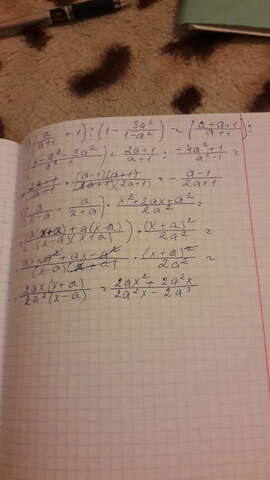 (a/(a+1) + 1) : (1 - 3a²/(1-a²)) = ((a+a+1)/(a+1)) :
(1-a²-3a²)/ = (2a+1)/(a+1) : (-4a²+1)/ =
· ((a-1)(a+1))/((2a+1)(2a+1)) = - (a-1)/(2a+1)
- a/(x+a)) · (x²+2ax+a²)/2a² =
a(x+a) + a(x-a)/((x-a)(x+a)) · (x+a)²/2a² =
ax + a² + ax - a²/((x-a)(x+a)) · (x+a)²/2a² =
2ax(x+a)/2a²(x-a) = (2ax² + 2a²x)/(2a²x - 2a³)